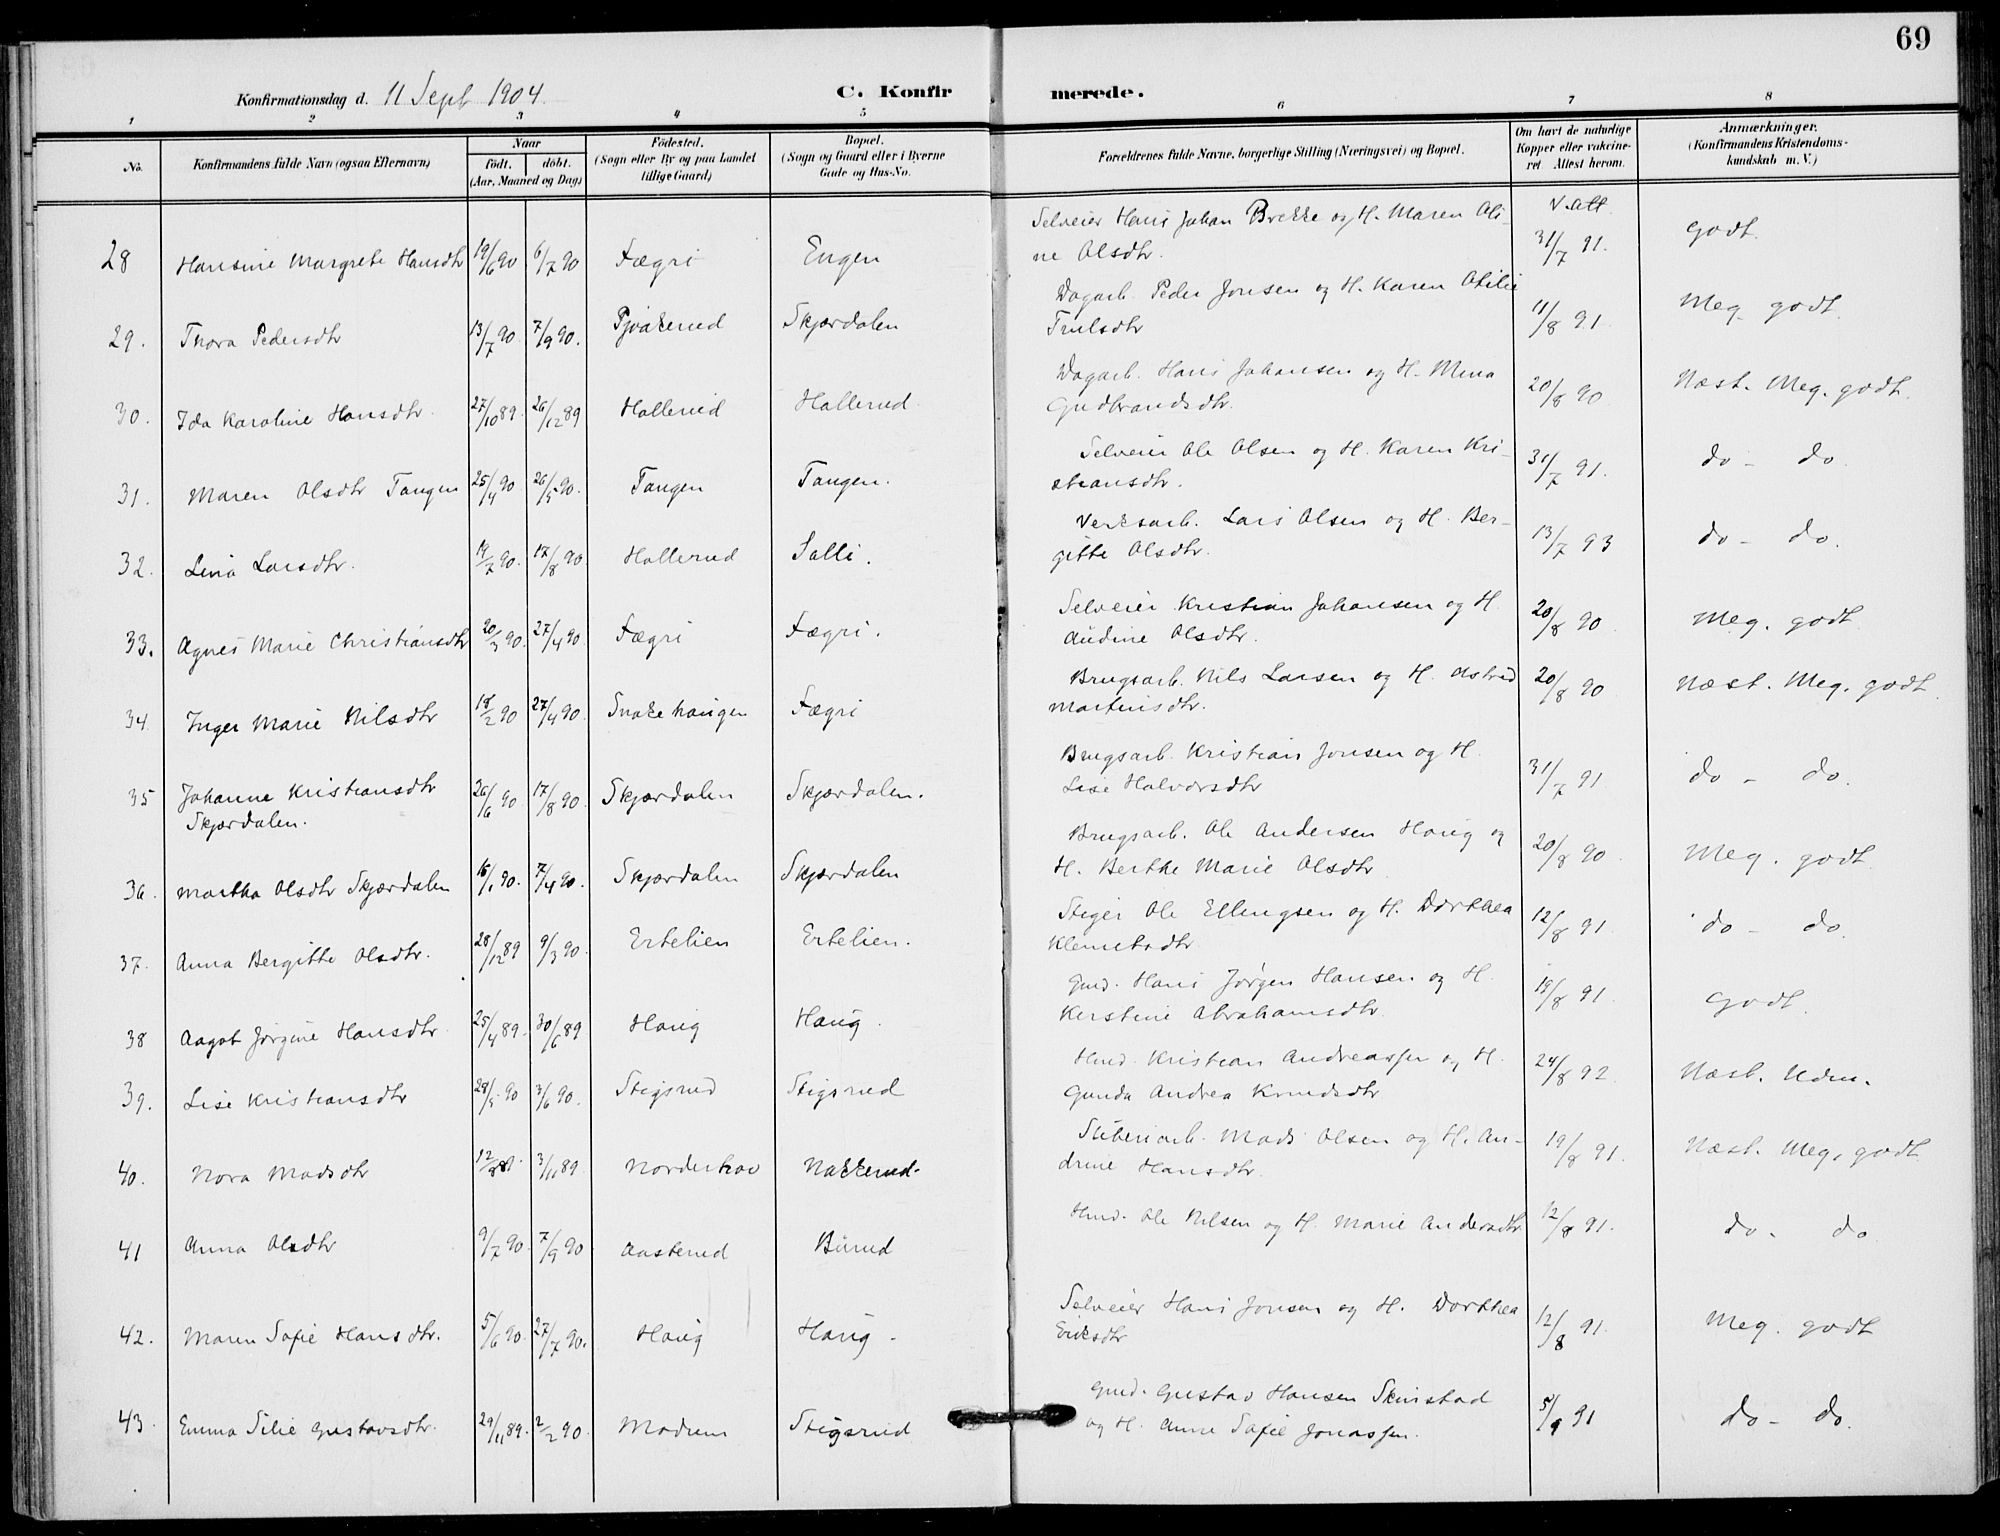 69
Konfirmationsdag d. 11 Sept 1904. C. Konfirmerede.
1 2 3 4 5 6 7 8
No. Konfirmandens fulde Navn (ogsaa Efternavn) Naar födt. döbt. (Aar, Maaned og Dag) Födested. (Sogn eller By og paa Landet tillige Gaard) Bopæl. (Sogn og Gaard eller i Byerne Gade og Hus-No. Forældrenes fulde Navne, borgerlige Stilling (Næringsvei) og Bopæl. Om havt de naturlige Kopper eller vakcineret Attest herom. Anmærkninger. (Konfirmandens Kristendomskundskab m. V.)
28 Hansine Margrete Hansdtr 19/6 90 6/7 90 Fægri Engen Selveier Hans Johan Brekke og H. Maren Oli-
ne Olsdtr. V. att. 31/7 91. Godt.
29. Thora Pedersdtr 13/7 90 7/9 90. Skjærdalen Dagarb. Peder Jonsen og H. Karen Otilie
Trulsdtr 11/8 91. Meg. godt.
30. Ida Karoline Hansdtr. 27/10 89 26/12 89 Hollerud Hollerud. Dagarb. Hans Johansen og H. Mina
Gudbrandsdtr. 20/8 90 Næst. Meg. godt.
31. Maren Olsdtr Tangen 25/4 90 26/5 90. Tangen Tangen. Selveier Ole Olsen og H. Karen Kri-
stiansdtr. 31/7 91. do - do.
32. Lina Larsdtr. 19/7 90. 17/8 90 Hollerud Solli. Verksarb. Lars Olsen og H. Ber-
gitte Olsdtr. 13/7 93 do - do.
33. Agnes Marie Christiansdtr 20/3 90. 27/4 90 Fægri Fægri. Selveier Kristian Johansen og H.
Audine Olsdtr. 20/8 90 Meg. godt
34 Inger Marie Nilsdtr 18/2 90 27/4 90. Snakehaugen Fægri Brugsarb. Nils Larsen og H. Astrid
Martinsdtr. 20/8 90 Næst. Meg. godt.
35 Johanne Kristiansdtr
Skjærdalen. 26/6 90 17/8 90. Skjærdalen Skjærdalen. Brugsarb. Kristian Jonsen og H.
Lise Halvorsdtr 31/7 91 do - do.
36. Martha Olsdtr Skjærdalen 16/1 90. 7/4 90. Skjærdalen Skjærdalen Brugsarb. Ole Andersen Haug og
H. Berthe Marie Olsdtr 20/8 90. Meg. godt
37. Anna Bergitte Olsdtr. 28/12 89 9/3 90. Ertelien Ertelien. Stiger Ole Ellingsen og H. Dorthea
Klemetsdtr. 12/8 91. do - do.
38 Aagot Jørgine Hansdtr 25/4 89. 30/6 89 Haug Haug. Gmd. Hans Jørgen Hansen og H.
Kerstine Abrahamsdtr. 19/8 91. Godt.
39. Lise Kristiansdtr 28/5 90 3/6 90. Stigsrud Stigsrud Hmd. Kristian Andreassen og H.
Gunda Andrea Knudsdtr 24/8 92. Næst. Udm.
40. Nora Madsdtr 3/11 89. Norderhov Nakkerud. Sliberiarb. Mads Olsen og H. An-
drine Hansdtr. 19/8 91. Næst. Meg. godt
41 Anna Olsdtr 9/7 90. 7/9 90 Aasterud Burud Hmd. Ole Nilsen og H. Marie Andersdtr 12/8 91. do - do
42. Maren Sofie Hansdtr. 5/6 90. 27/7 90. Haug Haug. Selveier Hans Jonsen og H. Dorthea
Eriksdtr 12/8 91. Meg. godt
43. Emma Silie Gustavsdtr. 29/11 89. 2/2 90 Modum Stigsrud Gmd. Gustav Hansen Skinstad
og H. Anne Sofie Jonassen. 5/9 91 do - do.